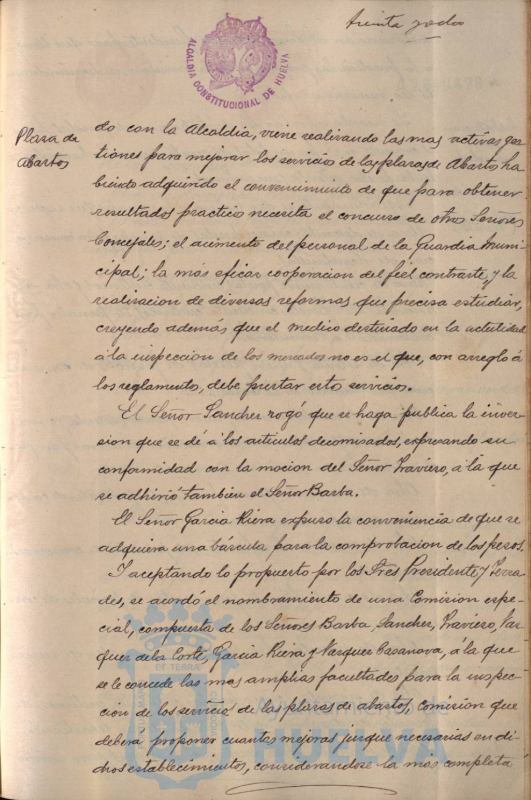 treinta y dos
ALCALDIA CONSTITUCIONAL DE HUELVA
Plaza de
abastos
do con la Alcaldia, viene realizando las mas activas ges-
tiones para mejorar los servicio de las plazas de Abastos ha
biendo adquirido el convenimiento de que para obtener
resultados practico necesita el concurso de otros Señores
Concejales; el aumento del personal de la Guardia Muni-
cipal; la más eficaz cooperacion del fiel contraste, y la
realizacion de diversas reformas que precisa estudiar,
creyendo además que el medico destinado en la actualidad
á la inspeccion de los mercados no es el que, con arreglo á
los reglamentos, debe prestar estos servicios.
El Señor Sanchez rogó que se haga publica la inver-
sion que se dé á los articulos decomisados, expresando su
conformidad con la mocion del Señor Traviero, á la que
se adhirió tambien el Señor Barba.
El Señor Garcia Riera expuso la conveniencia de que se
adquiera una báscula para la comprobacion de los pesos.
Y aceptando lo propuesto por los Sres Presidente y Terra
des, se acordó el nombramiento de una Comision espe-
cial, compuesta de los Señores Barba, Sanchez, Traviero, Vaz
quez de la Corte, Garcia Riera y Vazquez Casanova, á la que
se le concede las mas amplias facultades para la inspec-
cion de los servicio de las plazas de abastos, comision que
deberá proponer cuantas mejoras juzgue necesarias en di-
chos establecimientos, considerandose la más completa
HUELVA